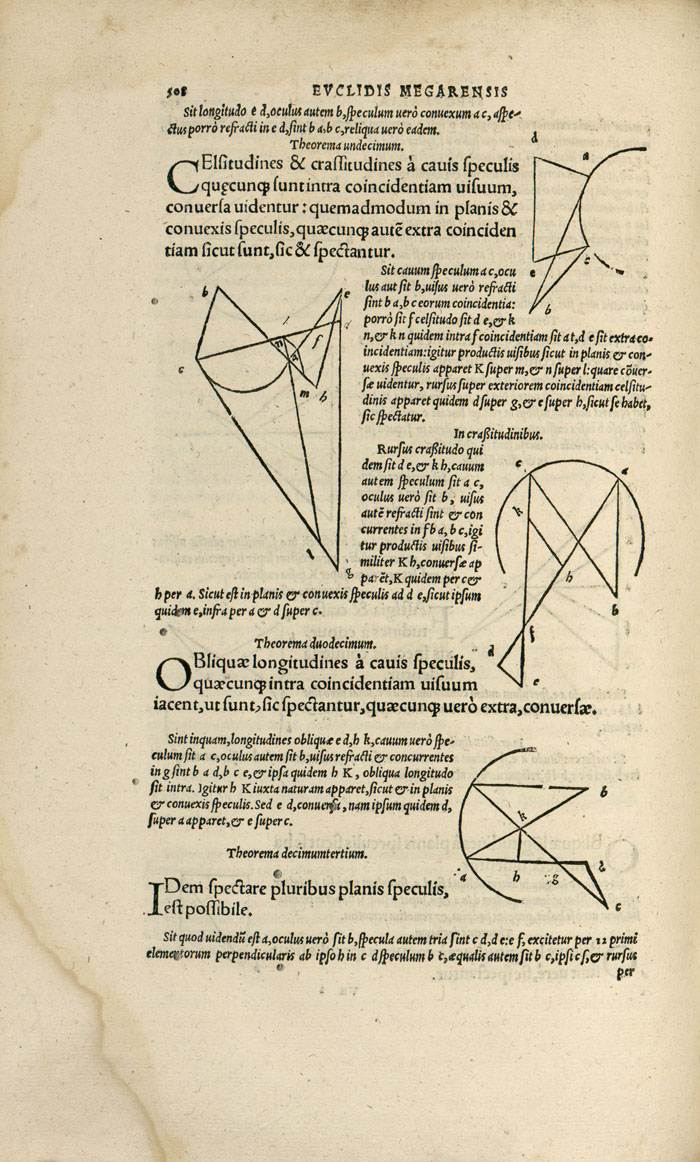 508 EVCLIDIS MEGARENSIS
Sit longitudo e d, oculus autem b, speculum uerò conuexum a c, aspe-
ctus porrò refracti in e d, sint b a, b c, reliqua uerò eadem.
Theorema undecimum.
CElsitudines & crassitudines à cauis speculis
quęcunq; sunt intra coincidentiam uisuum,
conuersa uidentur: quemadmodum in planis &
conuexis speculis, quæcunq; autẽ extra coinciden
tiam sicut sunt, sic & spectantur.
Sit cauum speculum a c, ocu
lus aut sit b, uisus uerò refracti
sint b a, b c eorum coincidentia:
porrò sit f celsitudo sit d e, & k
n, & k n quidem intra f coincidentiam sit at, d e sit extra co-
incidentiam: igitur productis uisibus sicut in planis & con-
uexis speculis apparet K super m, & n super l: quare cõuer-
sæ uidentur, rursus super exteriorem coincidentiam celsitu-
dinis apparet quidem d super g, & e super h, sicut se habet,
sic spectatur.
In craßitudinibus.
Rursus craßitudo qui
dem sit d e, & k h, cauum
autem speculum sit a c,
oculus uerò sit b, uisus
autẽ refracti sint & con
currentes in f b a, b c, igi
tur productis uisibus si-
militer K h, conuersæ ap
parẽt, K quidem per c &
h per a. Sicut est in planis & conuexis speculis ad d e, sicut ipsum
quidem e, infra per a & d super c.
Theorema duodecimum.
OBliquæ longitudines à cauis speculis,
quæcunq; intra coincidentiam uisuum
iacent, ut sunt, sic spectantur, quæcunq; uerò extra, conuersæ.
Sint inquam, longitudines obliquæ e d, h k, cauum uerò spe-
culum sit a c, oculus autem sit b, uisus refracti & concurrentes
in g sint b a d, b c e, & ipsa quidem h K, obliqua longitudo
sit intra. Igitur h K iuxta naturam apparet, sicut & in planis
& conuexis speculis. Sed e d, nam ipsum quidem d,
super a apparet, & e super c.
Theorema decimumtertium.
IDem spectare pluribus planis speculis,
est possibile.
Sit quod uidendũ est a, oculus uerò sit b, specula autem tria sint c d, d e: e f, excitetur per 12 primi
elementorum perpendicularis ab ipso h in c d speculum b c, æqualis autem sit b c, ipsi c s, & rursus
per
d
a
e
c
b
b
e
l
d
n
f
k
c
m
h
l
g
c
a
k
h
b
f
d
e
b
k
a
h
g
d
e